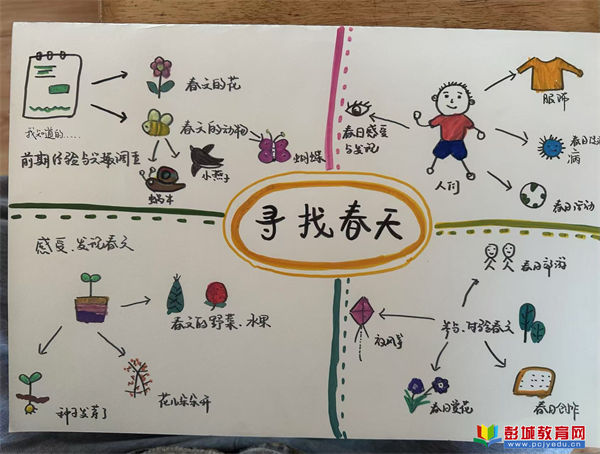 寻找春天
我知道的.....
前期经验与文献调查
春天的花
春天的动物
蝴蝶
小燕子
蜗牛
春日感受
与发现
人们
服饰
春日活动
感受、发现春天
春天的野菜、水果
种子发芽了
花儿朵朵开
春日郊游
体验春天
放风筝
春日赏花
春日创作
彭城教育网
www.pcjyedu.cn